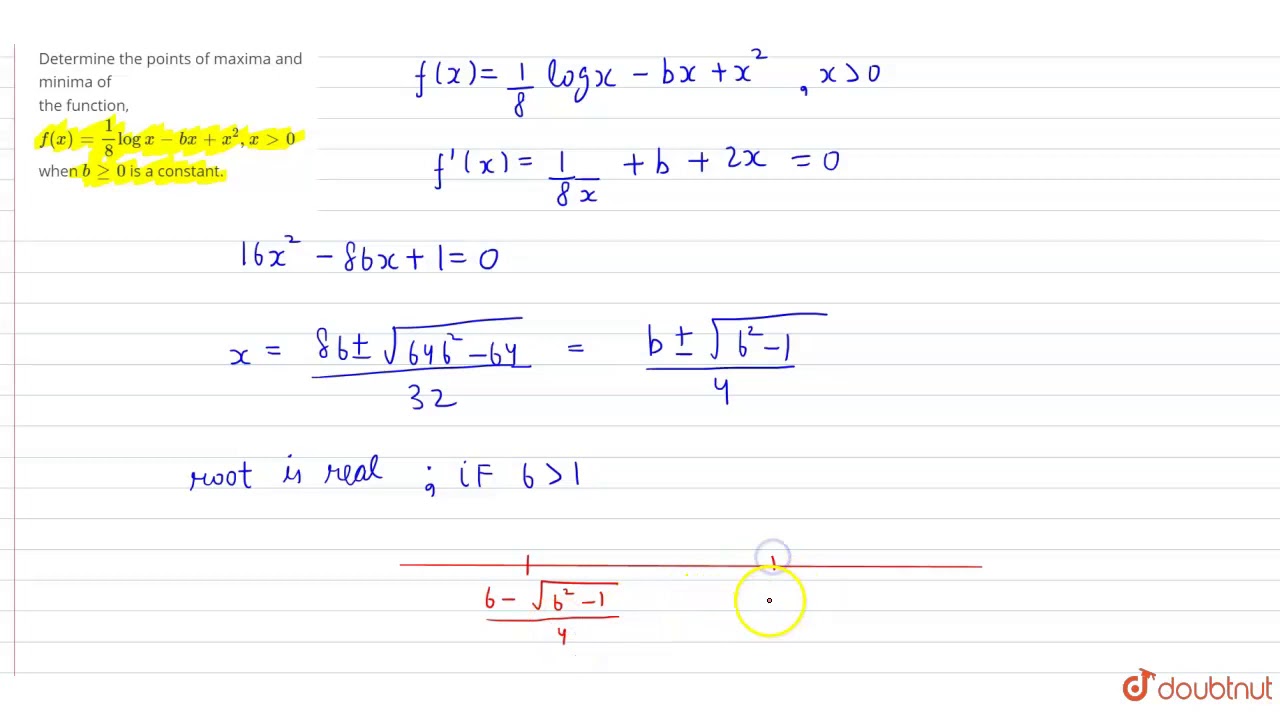 Determine the points of maxima and
minima of
the function,
f(x) = 1/8 log x − bx + x², x > 0
when b ≥ 0 is a constant.
f(x) = 1/8 log x − bx + x² , x > 0
f'(x) = 1/8x + b + 2x = 0
16x² − 8bx + 1 = 0
x = (8b ± √(64b² − 64))/32 = (b ± √(b² − 1))/4
root is real ; if b > 1
(b − √(b² − 1))/4
doubtnut